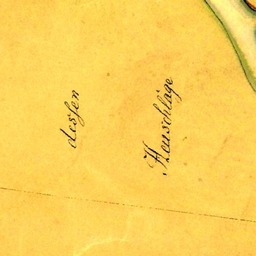 dessen
Heuschläge